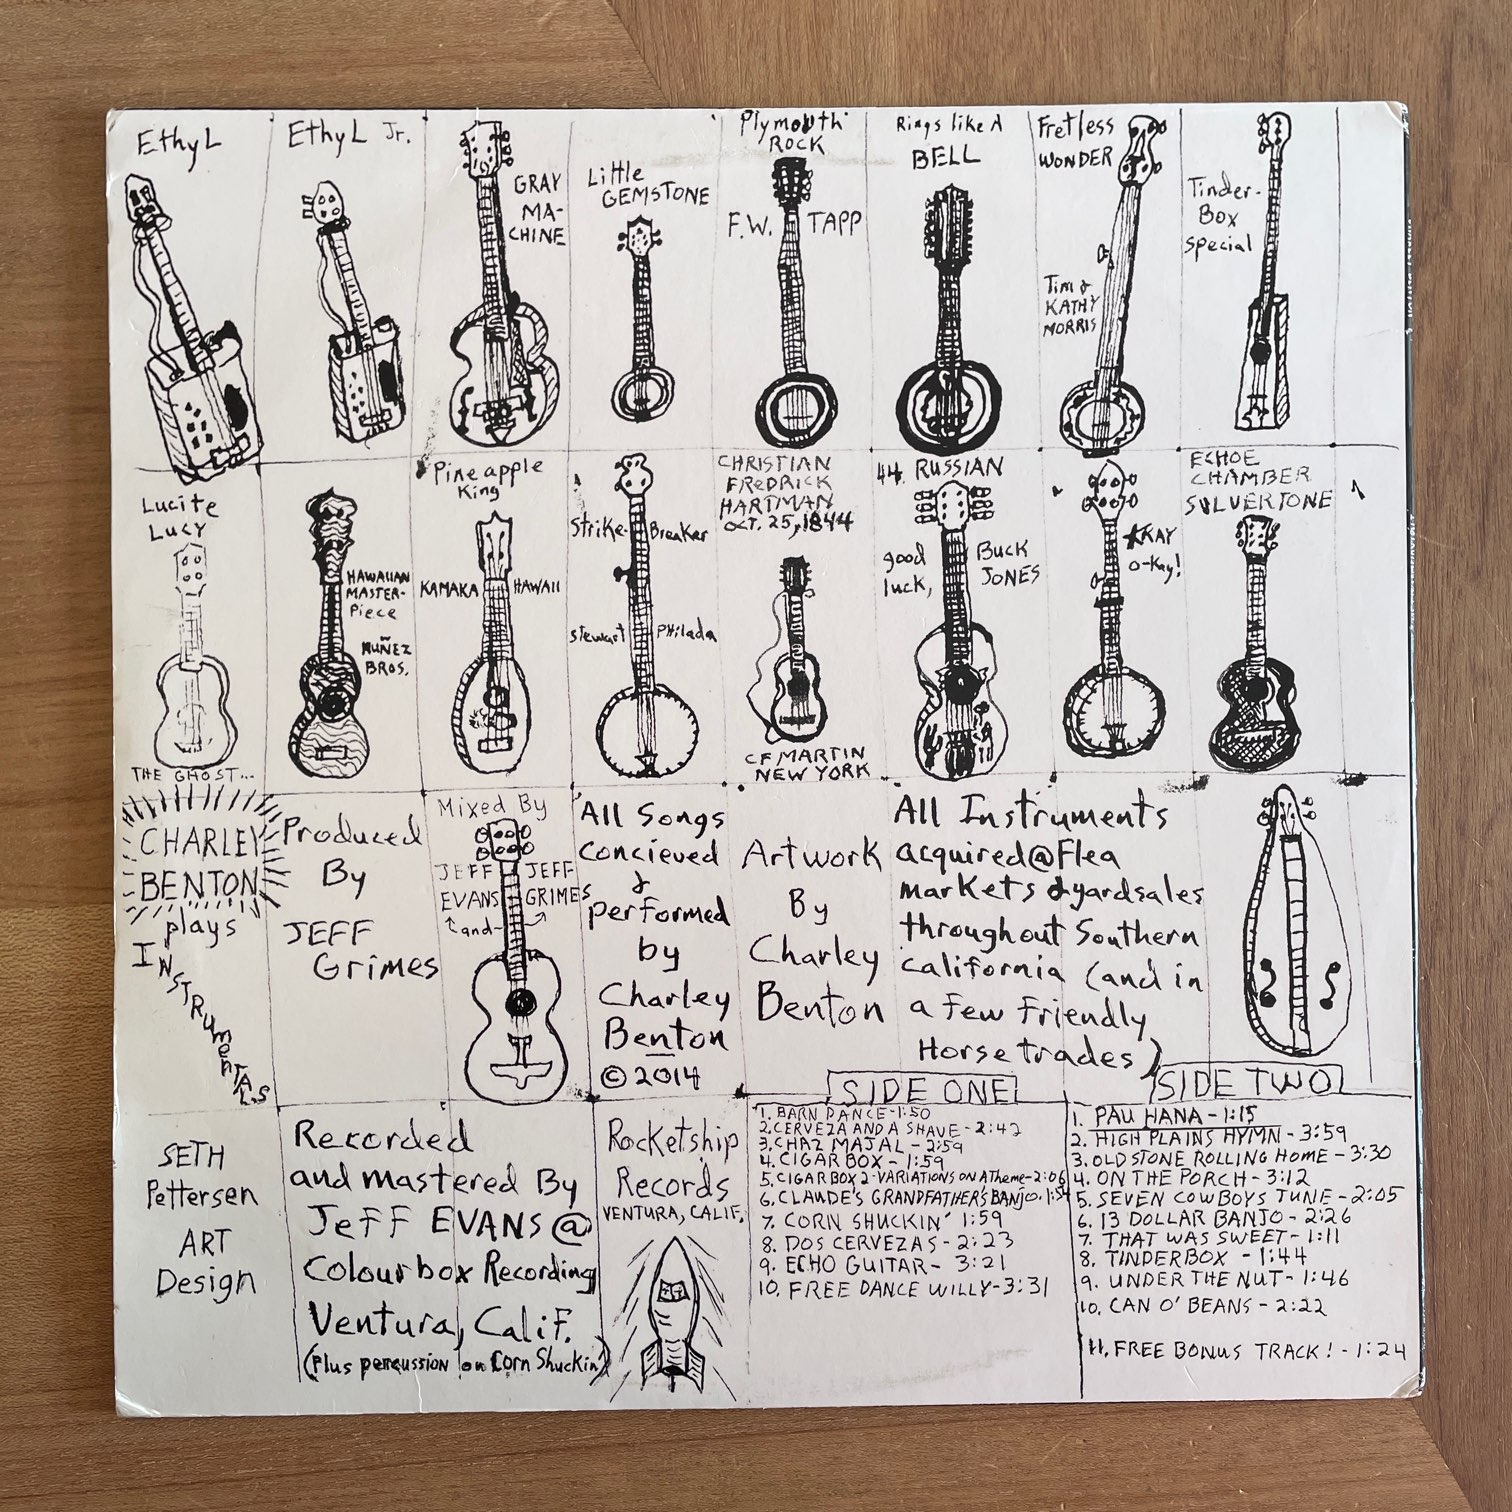 EthyL
EthyL Jr.
GRAY
MA-
CHINE
Little
GEMSTONE
Plymouth
ROCK
F.W. TAPP
Rings like A
BELL
Fretless
WONDER
Tim &
KATHY
MORRIS
Tinder-
Box
special
Lucite
Lucy
THE GHOST...
HAWAIIAN
MASTER-
Piece
NUÑEZ
BROS.
Pineapple
King
KAMAKA HAWAII
Strike- Breaker
Stewart PHilada
CHRISTIAN
FREDRICK
HARTMAN
OCT. 25, 1844
CF MARTIN
NEW YORK
44. RUSSIAN
good
luck,
BUCK
JONES
KAY
O-Kay!
ECHOE
CHAMBER
SILVERTONE
CHARLEY
BENTON
plays
INSTRUMENTALS
Produced
By
JEFF
Grimes
Mixed By
JEFF
EVANS
and
JEFF
GRIMES
All Songs
concieved
&
performed
by
Charley
Benton
© 2014
Artwork
By
Charley
Benton
All Instruments
acquired@Flea
markets & yardsales
throughout Southern
california (and in
a few friendly
Horsetrades)
SETH
Pettersen
ART
Design
Recorded
and mastered By
Jeff EVANS @
Colourbox Recording
Ventura, Calif.
(Plus percussion on Corn Shuckin')
Rocketship
Records
VENTURA, CALIF.
SIDE ONE
1. BARN DANCE-1:50
2. CERVEZA AND A SHAVE - 2:42
3. CHAZ MAJAL - 2:59
4. CIGAR BOX - 1:59
5. CIGAR BOX 2-VARIATIONS ON A Theme-2:06
6. CLAUDE'S GRANDFATHER'S BANJO. 1:54
7. CORN SHUCKIN' 1:59
8. DOS CERVEZAS - 2:23
9. ECHO GUITAR - 3:21
10. FREE DANCE WILLY-3:31
SIDE TWO
1. PAU HANA - 1:15
2. HIGH PLAINS HYMN - 3:59
3. OLD STONE ROLLING HOME - 3:30
4. ON THE PORCH - 3:12
5. SEVEN COWBOYS TUNE - 2:05
6. 13 DOLLAR BANJO - 2:26
7. THAT WAS SWEET - 1:11
8. TINDERBOX - 1:44
9. UNDER THE NUT - 1:46
10. CAN O' BEANS - 2:22
11. FREE BONUS TRACK! - 1:24